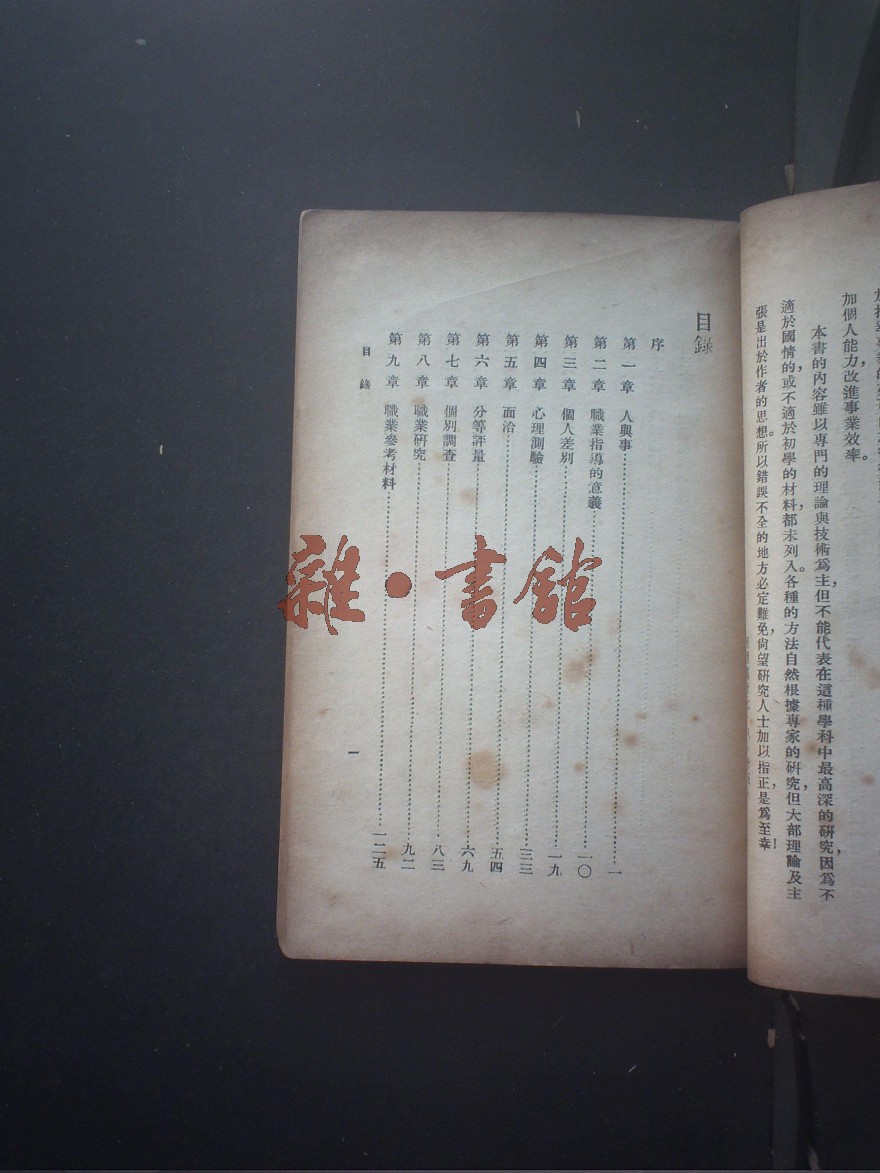 加個人能力,改進事業效率。
本書的內容雖以專門的理論與技術爲主,但不能代表在這種學科中最高深的研究,因爲不
適於國情的,或不適於初學的材料,都未列入。各種的方法自然根據專家的研究,但大部理論及主
張是出於作者的思想。所以錯誤不全的地方必定難免,尙望研究人士加以指正,是爲至幸!
目錄
序
第一章 人與事……一
第二章 職業指導的意義……一〇
第三章 個人差別……一九
第四章 心理測驗……三三
第五章 面洽……五四
第六章 分等評量……六九
第七章 個別調查……八三
第八章 職業研究……九二
第九章 職業參考材料……一二五
目錄
一
雜·書館